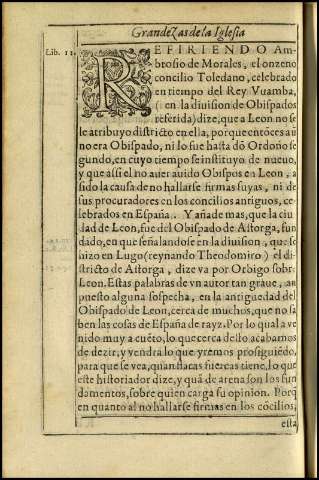 Grandezas de la Iglesia
Lib. 12.
REFIRIENDO Am-
brosio de Morales, el onzeno
concilio Toledano, celebrado
en tiempo del Rey Vuamba,
(en la diuision de Obispados
referida) dize, que a Leon no se
le atribuyo districto en ella, porque entōces aū
no era Obispado, ni lo fue hasta dō Ordoño se
gundo, en cuyo tiempo se instituyo de nueuo,
y que assi el no auer auido Obispos en Leon, a
sido la causa de no hallarse firmas suyas, ni de
sus procuradores en los concilios antiguos, ce-
lebrados en España. Y añade mas, que la ciu
dad de Leon, fue del Obispado de Astorga, fun
dado, en que señalandose en la diuision, que se
hizo en Lugo (reynando Theodomiro) el di-
stricto de Astorga, dize va por Orbigo sobre
Leon. Estas palabras de vn autor tan graue, an
puesto alguna sospecha, en la antiguedad del
Obispado de Leon, cerca de muchos, que no sa
ben las cosas de España de rayz. Por lo qual a ve
nido muy a cuēto, lo que cerca dello acabamos
de dezir, y vendra lo que yremos prosiguiēdo,
para que se vea, quan flacas fuerças tiene, lo que
este historiador dize, y quā de arena son los fun
damentos, sobre quien carga su opinion. Porq̄
en quanto al no hallarse firmas en los cōcilios,
esta